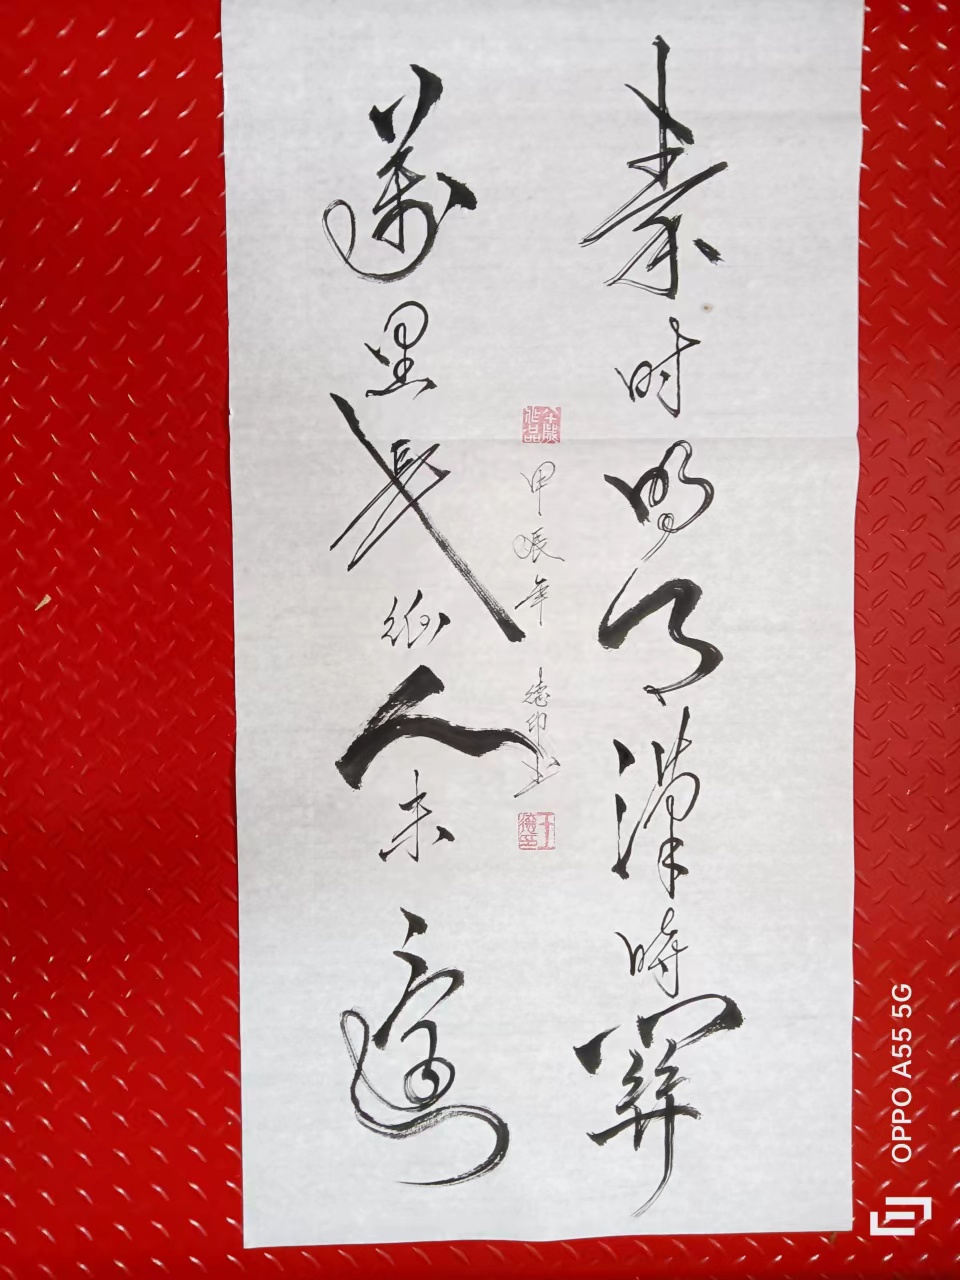 秦时明月汉时関
萬里長征人未還
甲辰年 德印书
OPPO A55 5G